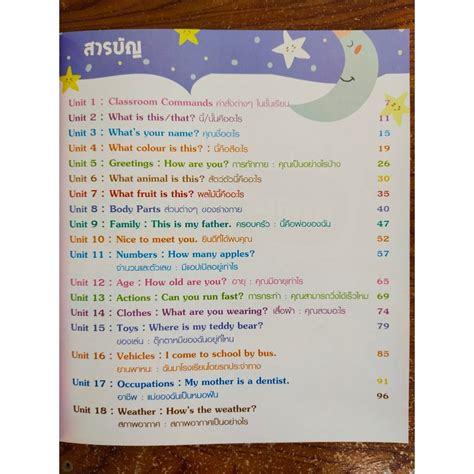 สารบัญ
Unit 1 : Classroom Commands คำสั่งต่างๆ ในชั้นเรียน 7
Unit 2 : What is this/that? นี่/นั่นคืออะไร 11
Unit 3 : What's your name? คุณชื่ออะไร 15
Unit 4 : What colour is this? : นี่คือสีอะไร 19
Unit 5 : Greetings : How are you? การทักทาย : คุณเป็นอย่างไรบ้าง 26
Unit 6 : What animal is this? สัตว์ตัวนี้คืออะไร 30
Unit 7 : What fruit is this? ผลไม้นี้คืออะไร 35
Unit 8 : Body Parts ส่วนต่างๆ ของร่างกาย 40
Unit 9 : Family : This is my father. ครอบครัว : นี่คือพ่อของฉัน 47
Unit 10 : Nice to meet you. ยินดีที่ได้พบคุณ 52
Unit 11 : Numbers : How many apples? 57
จำนวนและตัวเลข : มีแอปเปิลอยู่เท่าไร
Unit 12 : Age : How old are you? อายุ : คุณมีอายุเท่าไร 65
Unit 13 : Actions : Can you run fast? การกระทำ : คุณสามารถวิ่งได้เร็วไหม 69
Unit 14 : Clothes : What are you wearing? เสื้อผ้า : คุณสวมอะไร 74
Unit 15 : Toys : Where is my teddy bear? 79
ของเล่น : ตุ๊กตาหมีของฉันอยู่ที่ไหน
Unit 16 : Vehicles : I come to school by bus. 85
ยานพาหนะ : ฉันมาโรงเรียนโดยรถประจำทาง
Unit 17 : Occupations : My mother is a dentist. 91
อาชีพ : แม่ของฉันเป็นหมอฟัน 96
Unit 18 : Weather : How's the weather?
สภาพอากาศ : สภาพอากาศเป็นอย่างไร